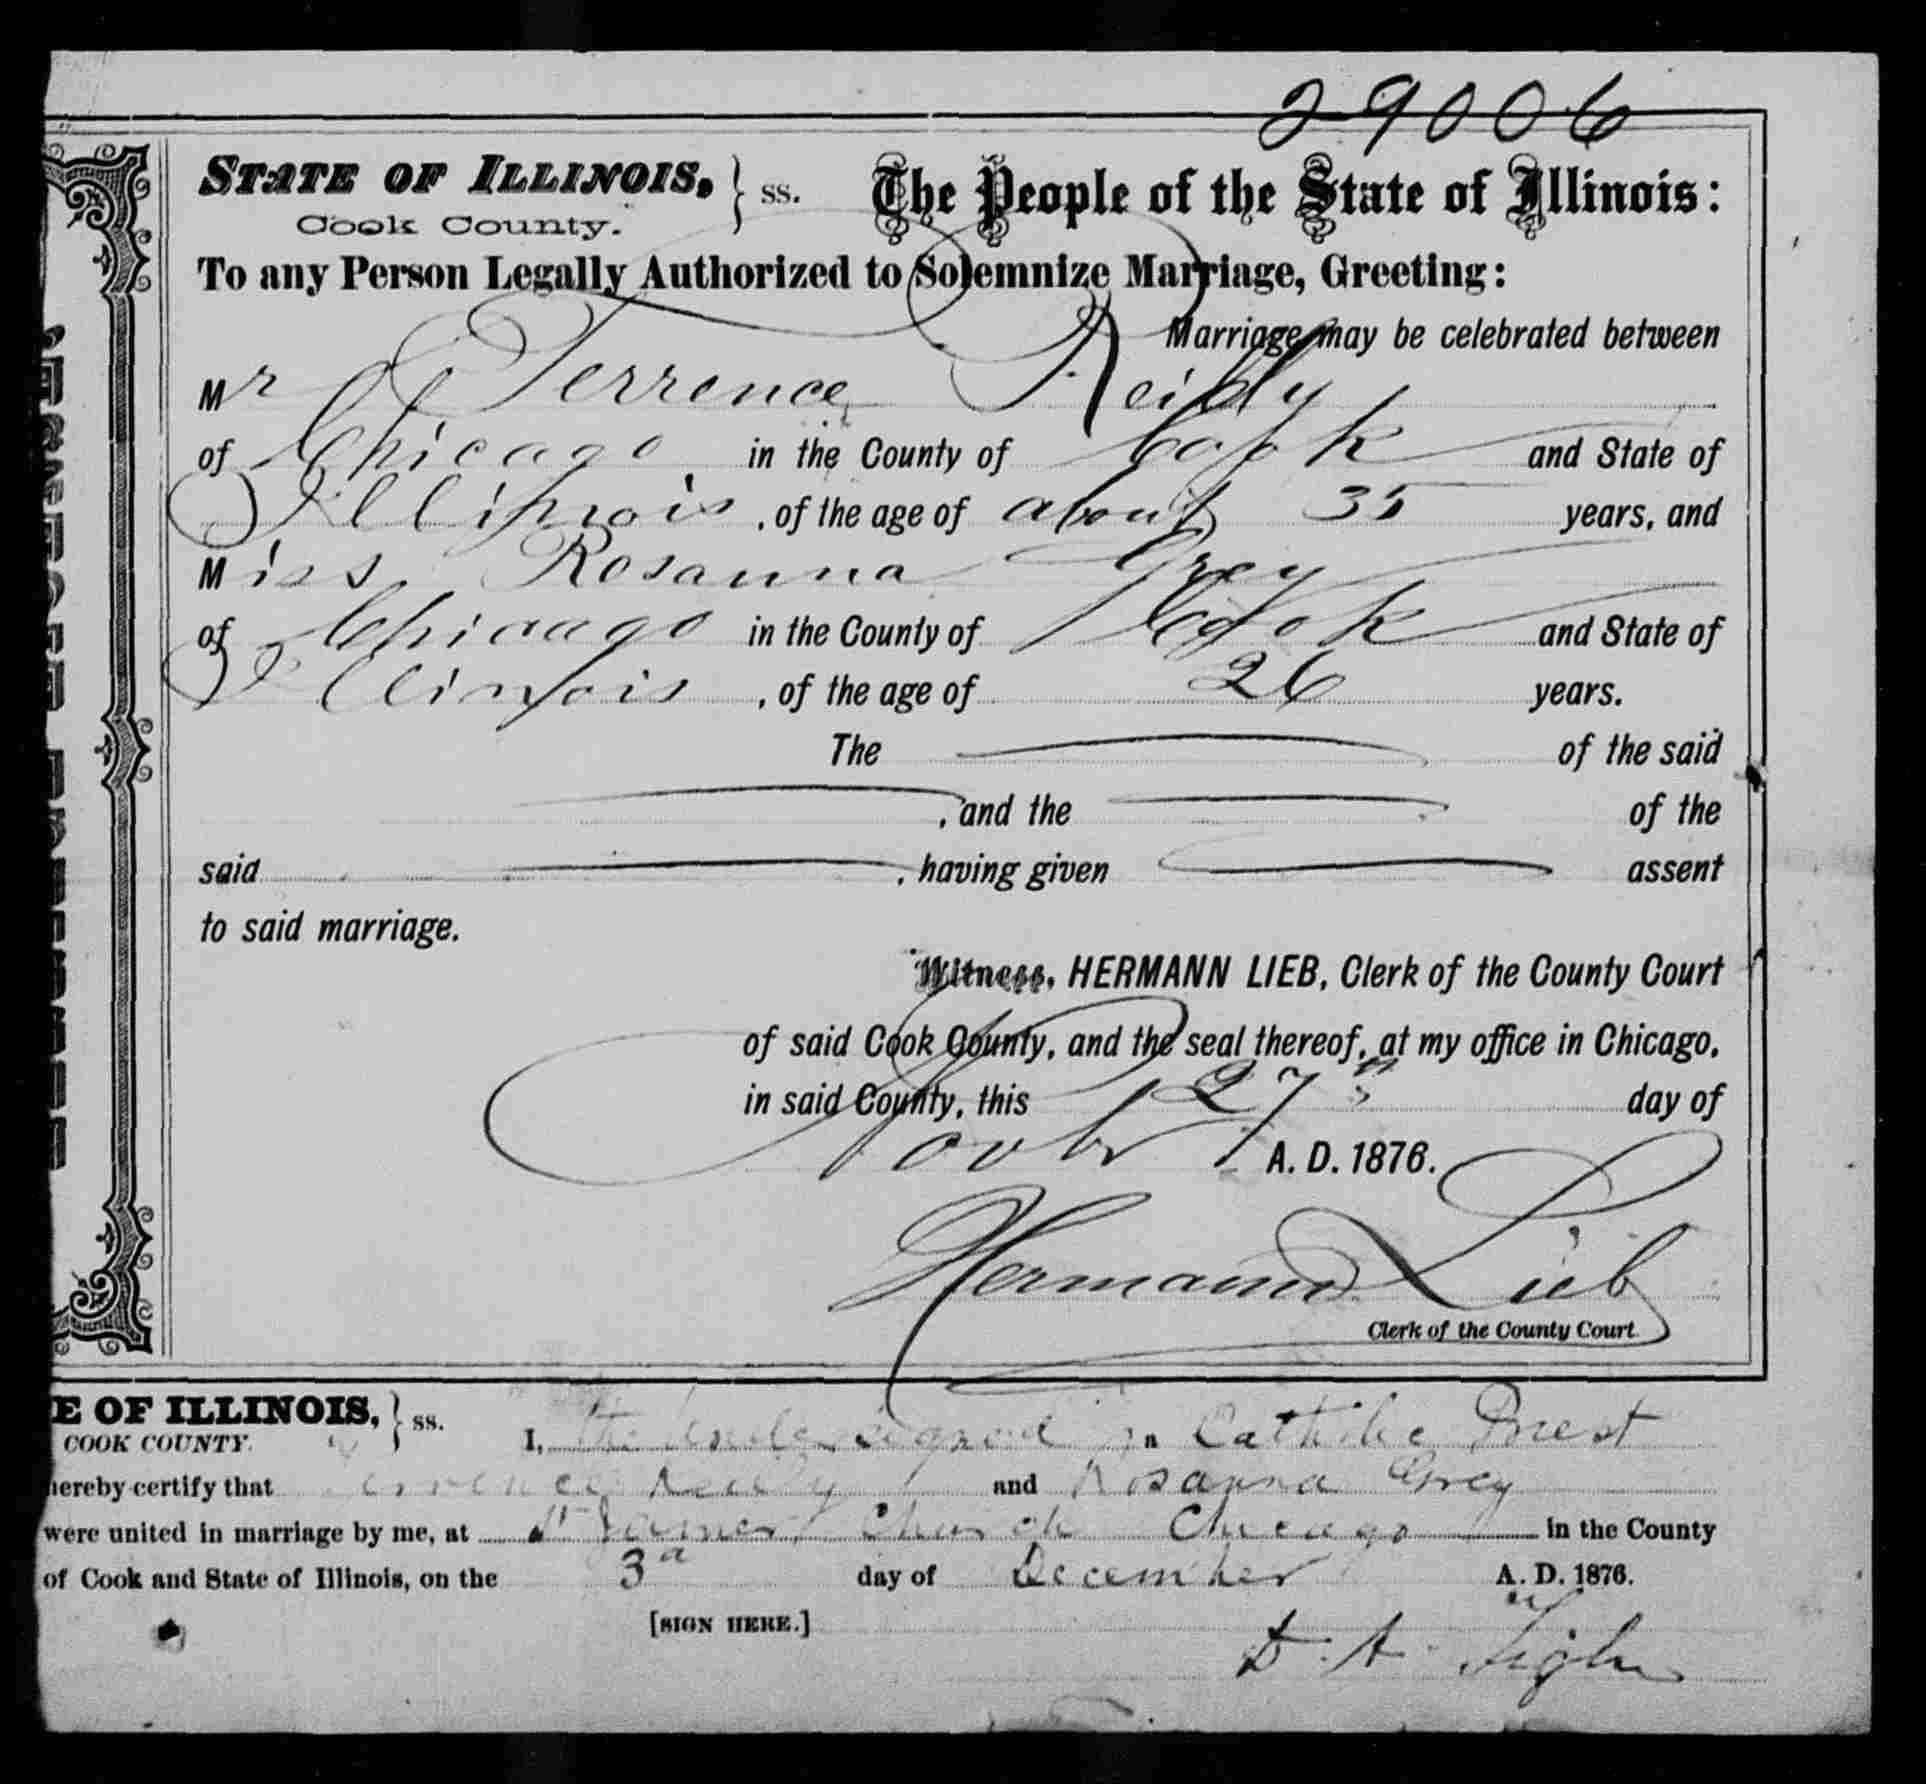 29006
STATE OF ILLINOIS, } ss. The People of the State of Illinois:
Cook County.
To any Person Legally Authorized to Solemnize Marriage, Greeting:
Marriage may be celebrated between
Mr Terrence Reidy
of Chicago in the County of Cook and State of
Illinois, of the age of about 35 years, and
Miss Rosanna Grey
of Chicago in the County of Cook and State of
Illinois, of the age of 26 years.
The of the said
, and the of the
said , having given assent
to said marriage.
Witness, HERMANN LIEB, Clerk of the County Court
of said Cook County, and the seal thereof, at my office in Chicago,
in said County, this 27th day of
Novbr A. D. 1876.
Hermann Lieb
Clerk of the County Court
E OF ILLINOIS, } ss.
COOK COUNTY. I, the undersigned a Catholic Priest
hereby certify that Terrence Reidy and Rosanna Grey
were united in marriage by me, at St James Church Chicago in the County
of Cook and State of Illinois, on the 3d day of December A. D. 1876.
[SIGN HERE.]
D. A. Tighe